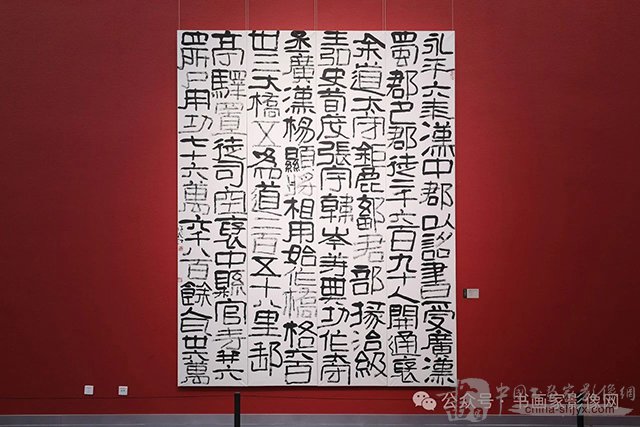 永平六年漢中郡以詔書受廣漢
蜀郡巴郡徒二千六百九十人開通褒
余道太守鉅鹿鄐君部掾治級
王弘史荀茂張宇韓岑等典功作太守
丞廣漢楊顯將相用始作橋格六百
卅三大橋五為道二百五十八里郵
亭驛置徒司空褒中縣官寺并六
四所凡用功七十六萬六千八百餘卅六萬
中国书画家影像網
公众号 · 书画家影像网
china-shjyx.com